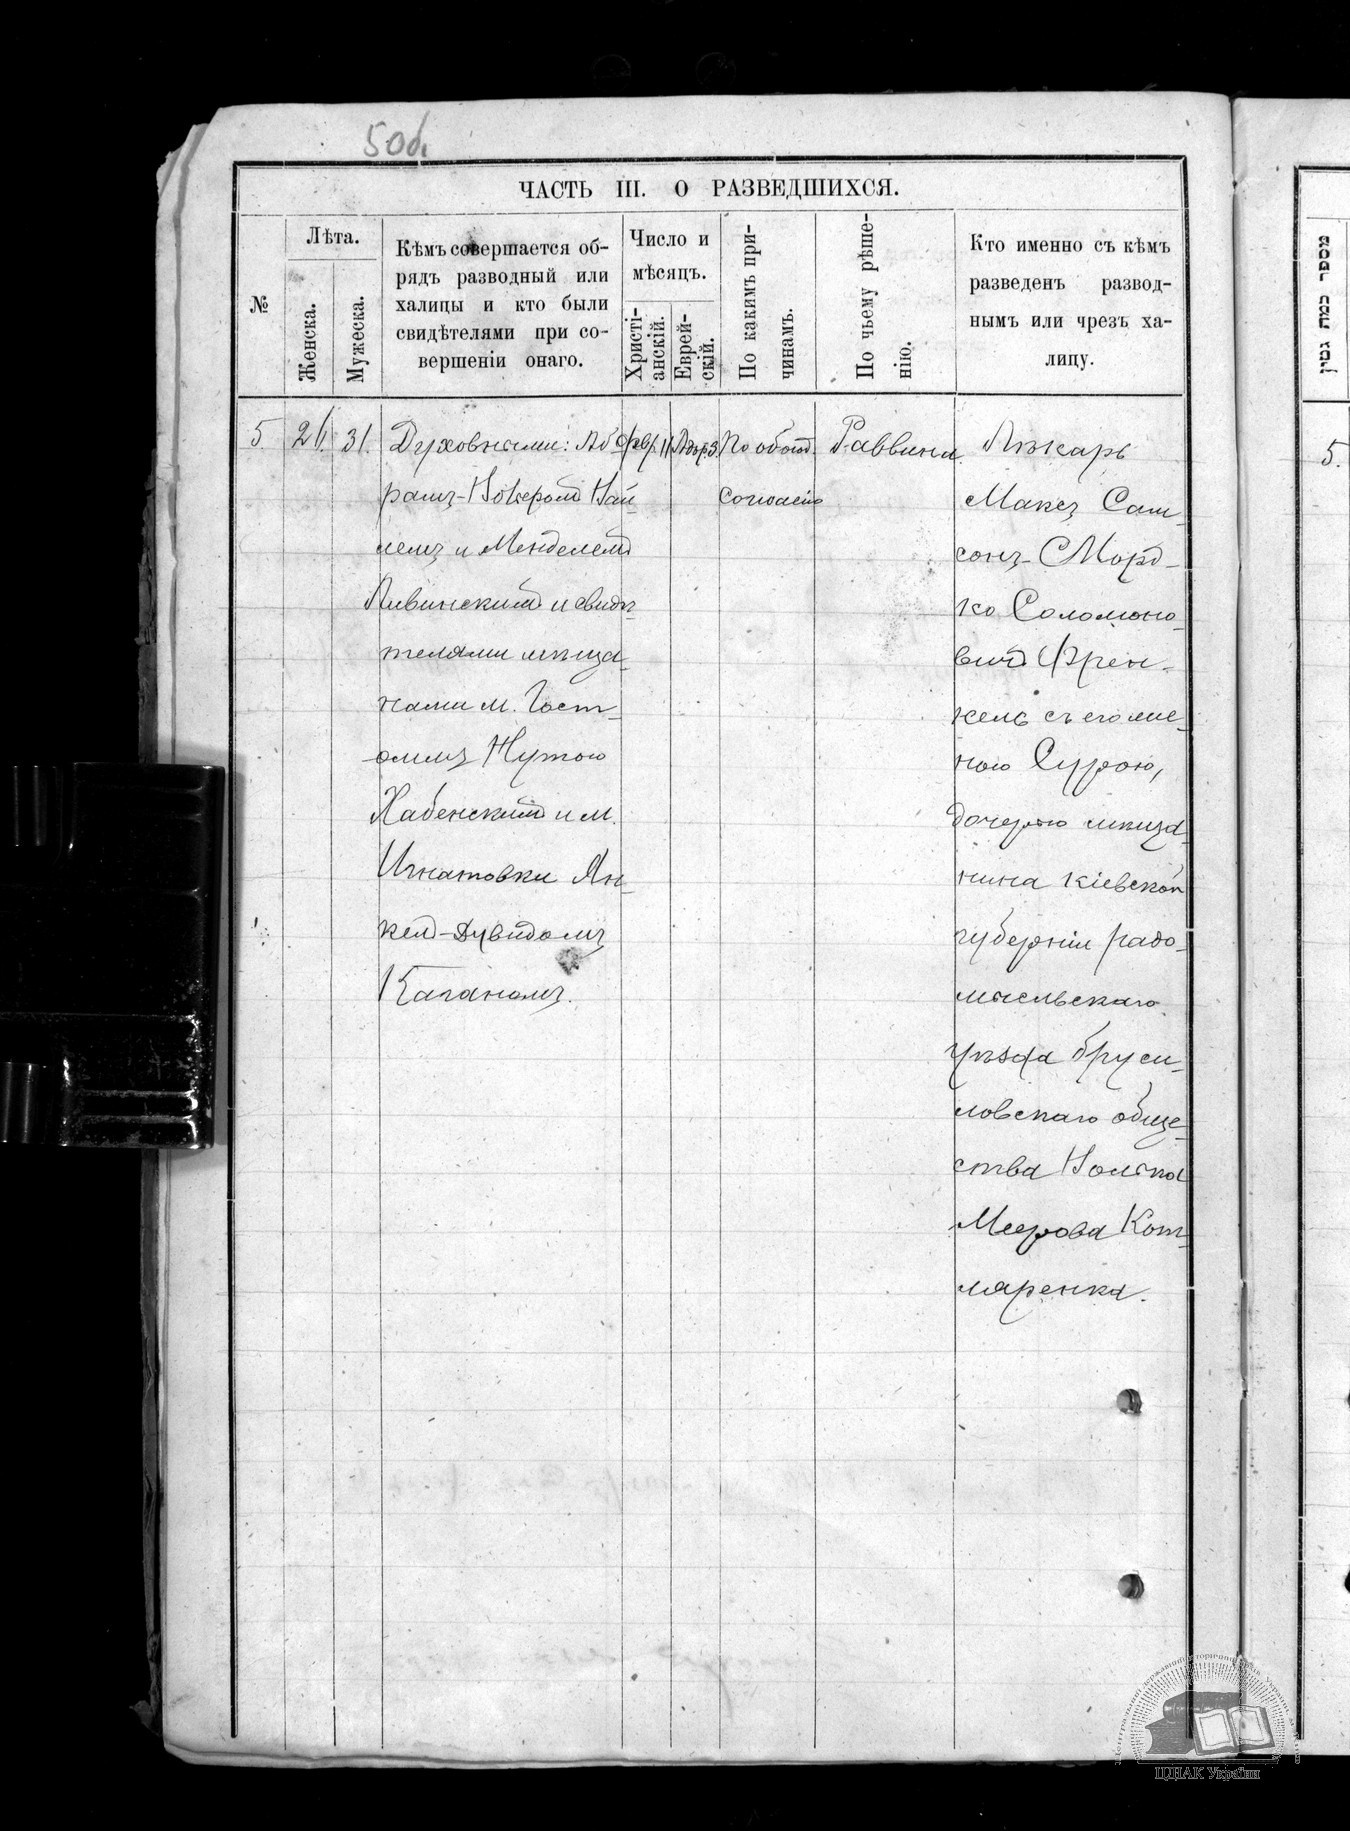 50об.
ЧАСТЬ III. О РАЗВЕДШИХСЯ.
№
Лѣта.
Женска.
Мужеска.
Кѣмъ совершается об-
рядъ разводный или
халицы и кто были
свидѣтелями при со-
вершеніи онаго.
Число и
мѣсяцъ.
Христі-
анскій.
Еврей-
скій.
По какимъ при-
чинамъ.
По чьему рѣше-
нію.
Кто именно съ кѣмъ
разведенъ развод-
нымъ или чрезъ ха-
лицу.
5.
31.
Духовными: Аб
рамъ-
и Менделемъ
Ливинскимъ и свидѣ-
телями мѣща-
нами м. Гост-
омль Нутою
Хабенскимъ и м.
Игнатовки Ян-
кел-Дувидомъ
Каганомъ.
Февр. 11
Адар. 3.
По обоюд.
согласію
Раввина.
Лѣкарь
Максъ Сам-
сонъ-Морд-
ко Соломоно-
вичъ Френ-
кель съ его же-
ною Сурою,
дочерью мѣща-
нина Кіевской
губерніи радо-
мысльскаго
уѣзда бруси-
ловскаго обще-
ства
Меерова Кот-
ляренка.
מספר כמת גטין
5.
ЦДІАК України